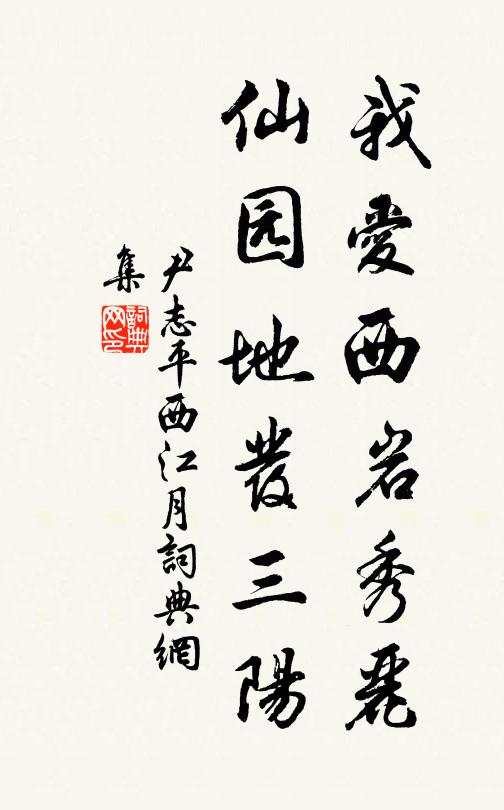 我愛西岩秀麗
仙园地發三陽
尹志平西江月詞典網
集
詞典
网印